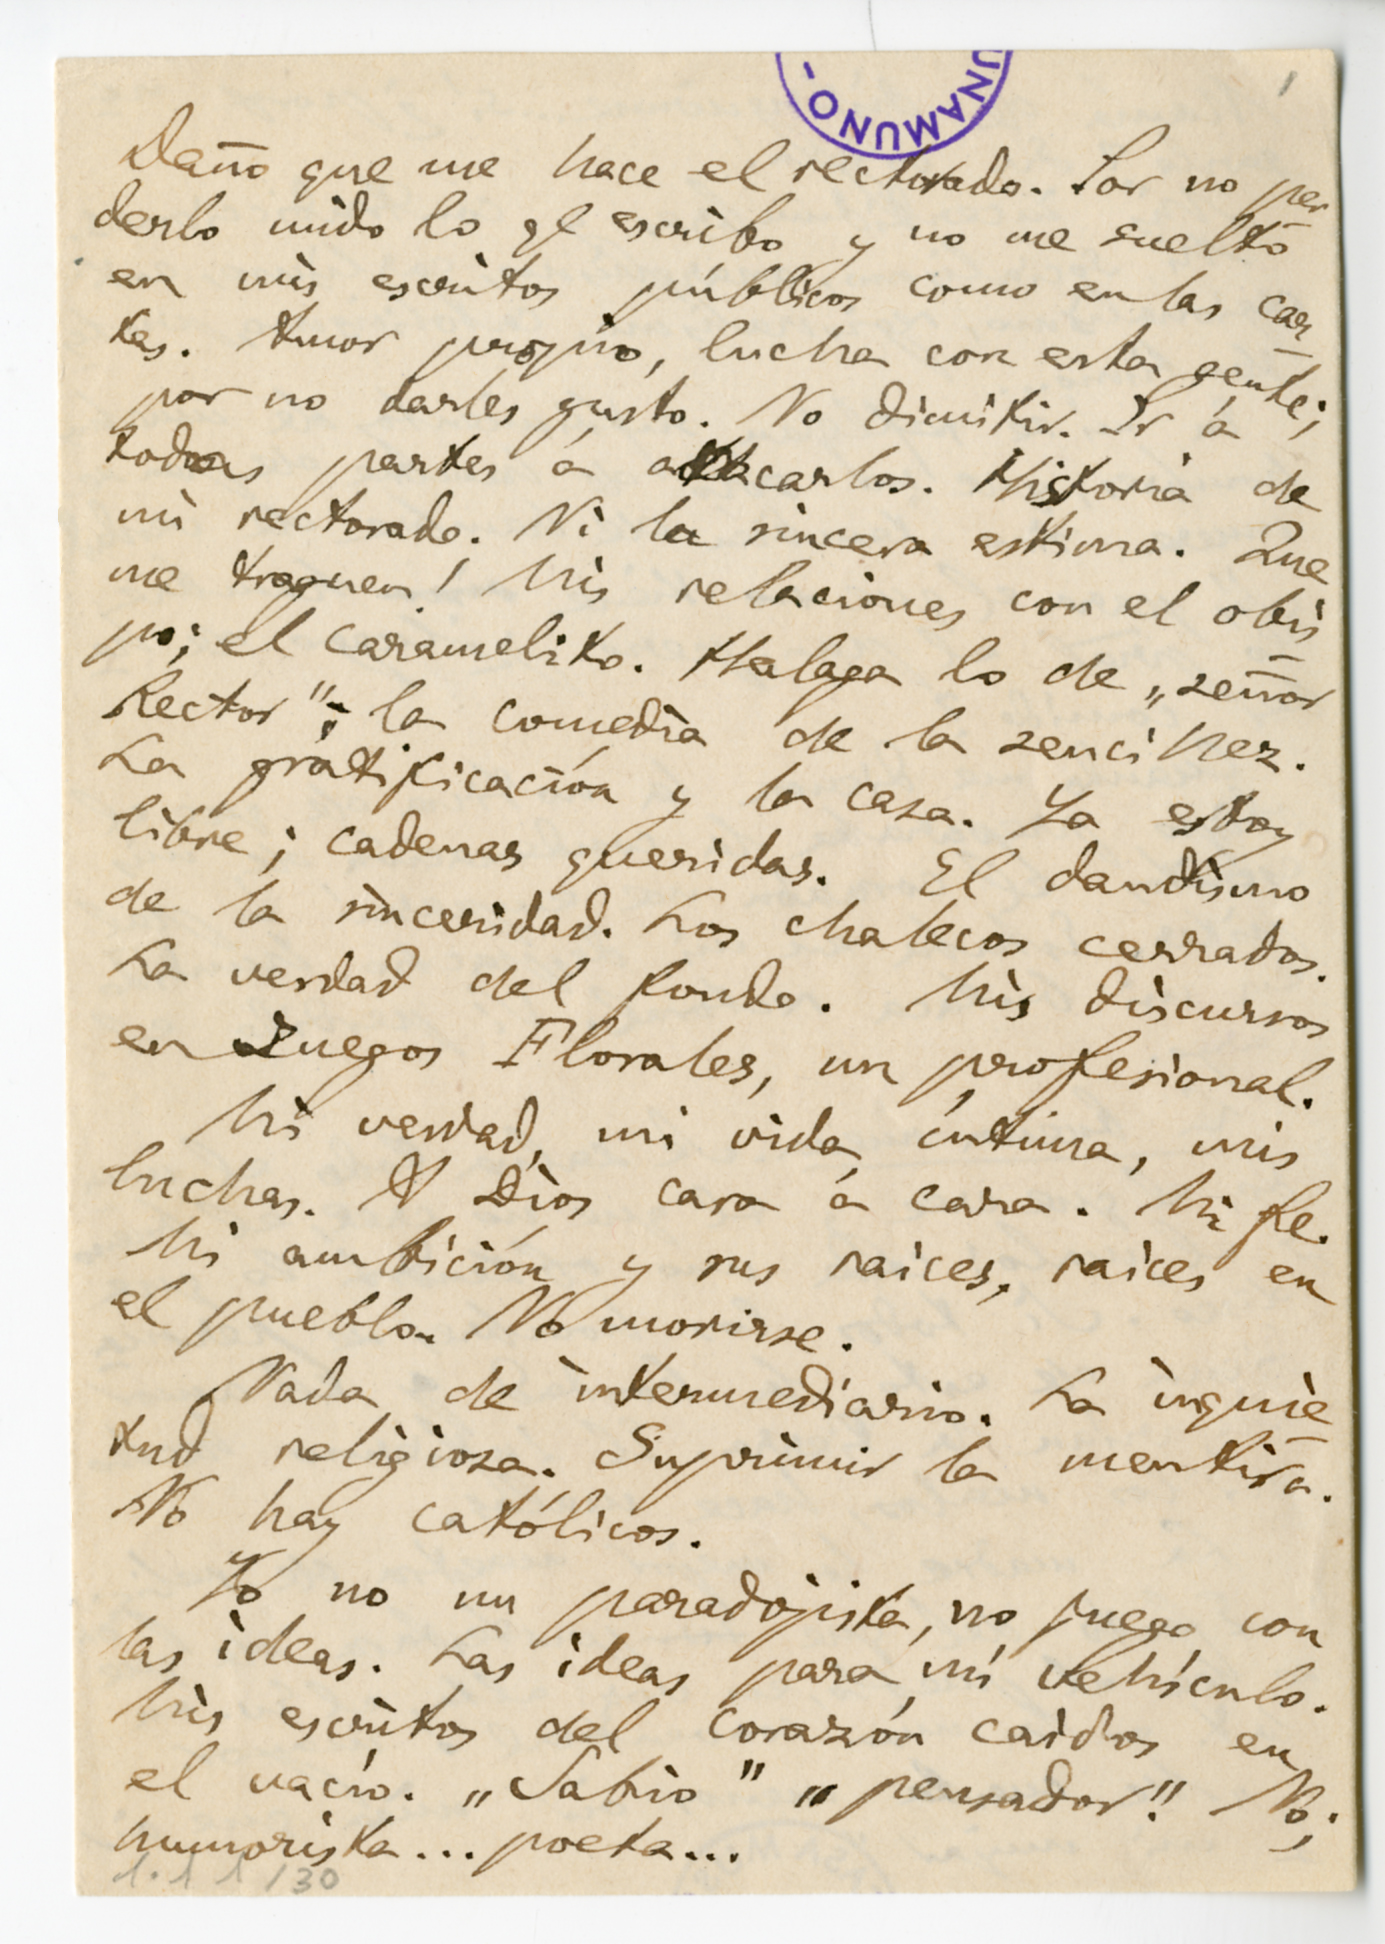 UNAMUNO -
1
Daño que me hace el rectorado. Por no per
derlo mido lo qe escribo y no me suelto
en mis escritos públicos como en las car
tas. Amor propio, lucha con esta gente;
por no darles gusto. No dimitir. Ir á
todas partes á atacarlos. Historia de
mi rectorado. Ni la sincera estima. Que
me traguen! Mis relaciones con el obis
po; el caramelito. Halaga lo de „señor
Rector"; la comedia de la sencillez.
La gratificación y la casa. Ya estoy
libre; cadenas queridas. El dandismo
de la sinceridad. Los chalecos cerrados.
La verdad del fondo. Mis discursos
en Juegos Florales, un profesional.
Mi verdad, mi vida íntima, mis
luchas. A Dios cara á cara. Mi fe.
Mi ambición y sus raices, raices en
el pueblo. No morirse.
Nada de intermediario. La inquie
tud religiosa. Suprimir la mentira.
No hay católicos.
Yo no un paradojista, no juego con
las ideas. Las ideas para mí vehículo.
Mis escritos del corazón caidos en
el vacío. „Sabio" „pensador"! No;
humorista... poeta...
1.1 1 /30